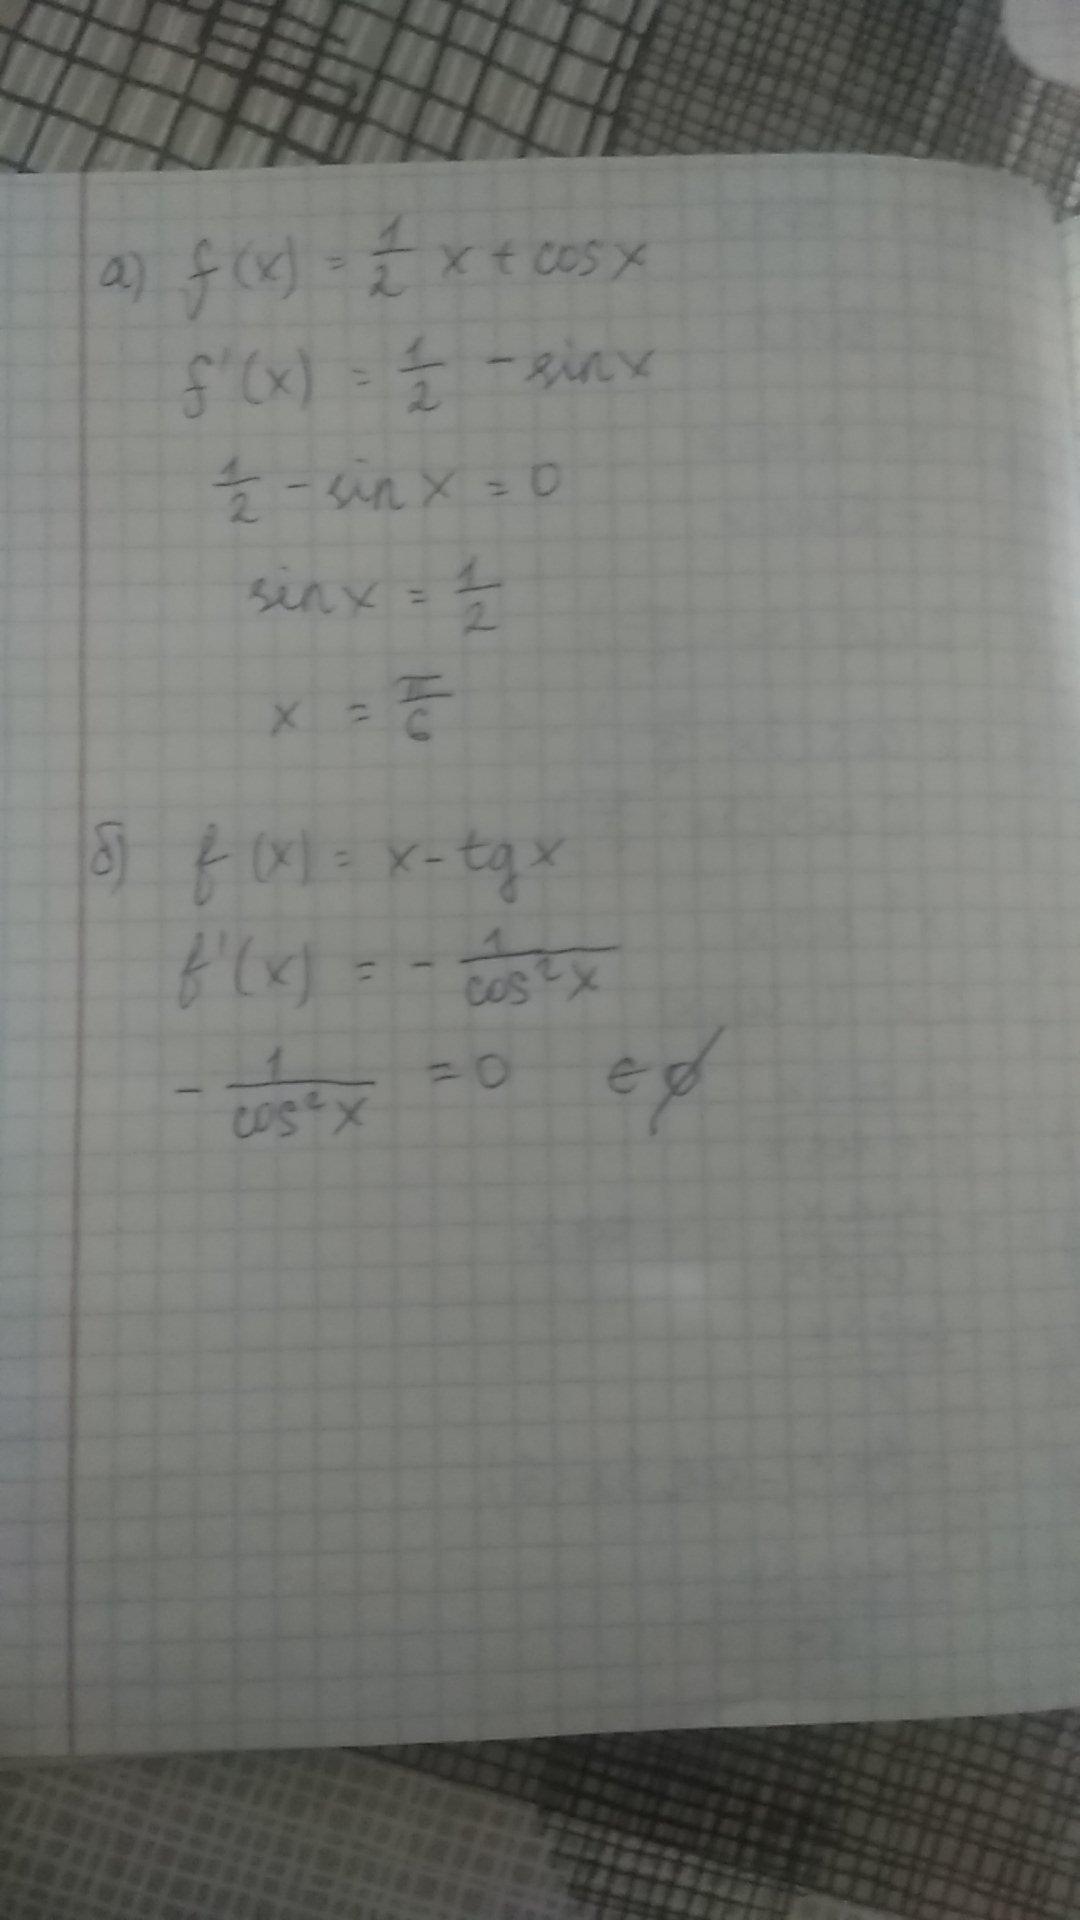 а) f(x) = 1/2 x + cos x
f'(x) = 1/2 - sin x
1/2 - sin x = 0
sin x = 1/2
x = π/6
б) f(x) = x - tg x
f'(x) = - 1/cos²x
- 1/cos²x = 0 ∈ ∅